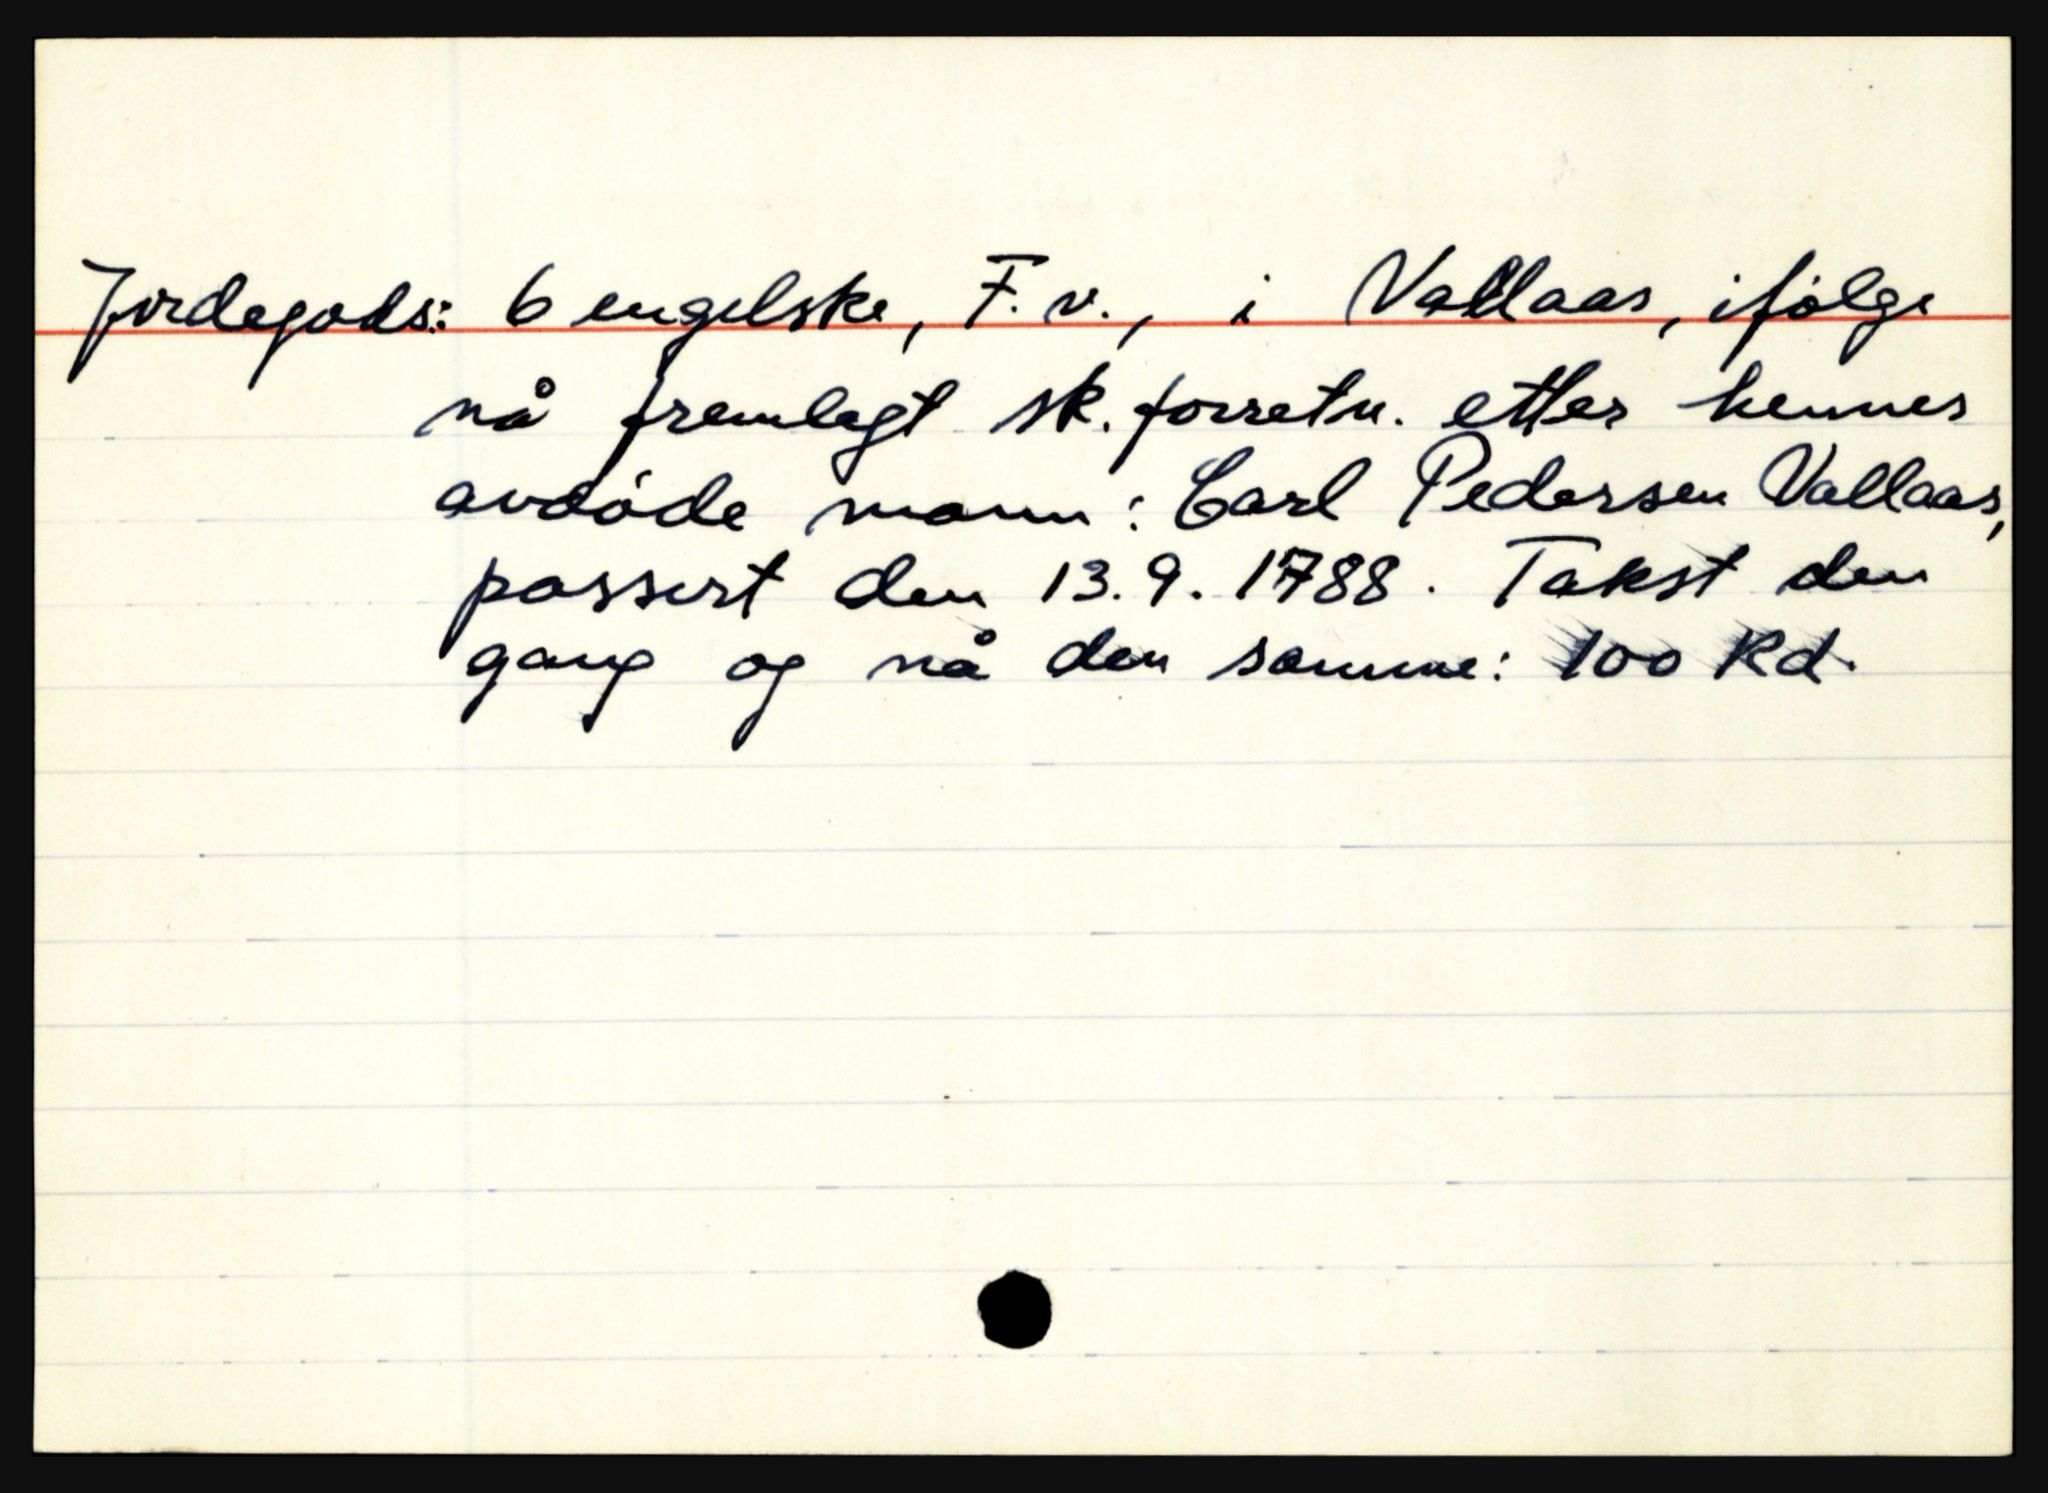 Jordegods: 6 engelske, F.v., i Vallaas, ifølge
nå fremlagt sk. forretn. etter hennes
avdøde mann: Carl Pedersen Vallaas,
passert den 13.9.1788. Takst den
gang og nå den samme: 100 Rd.